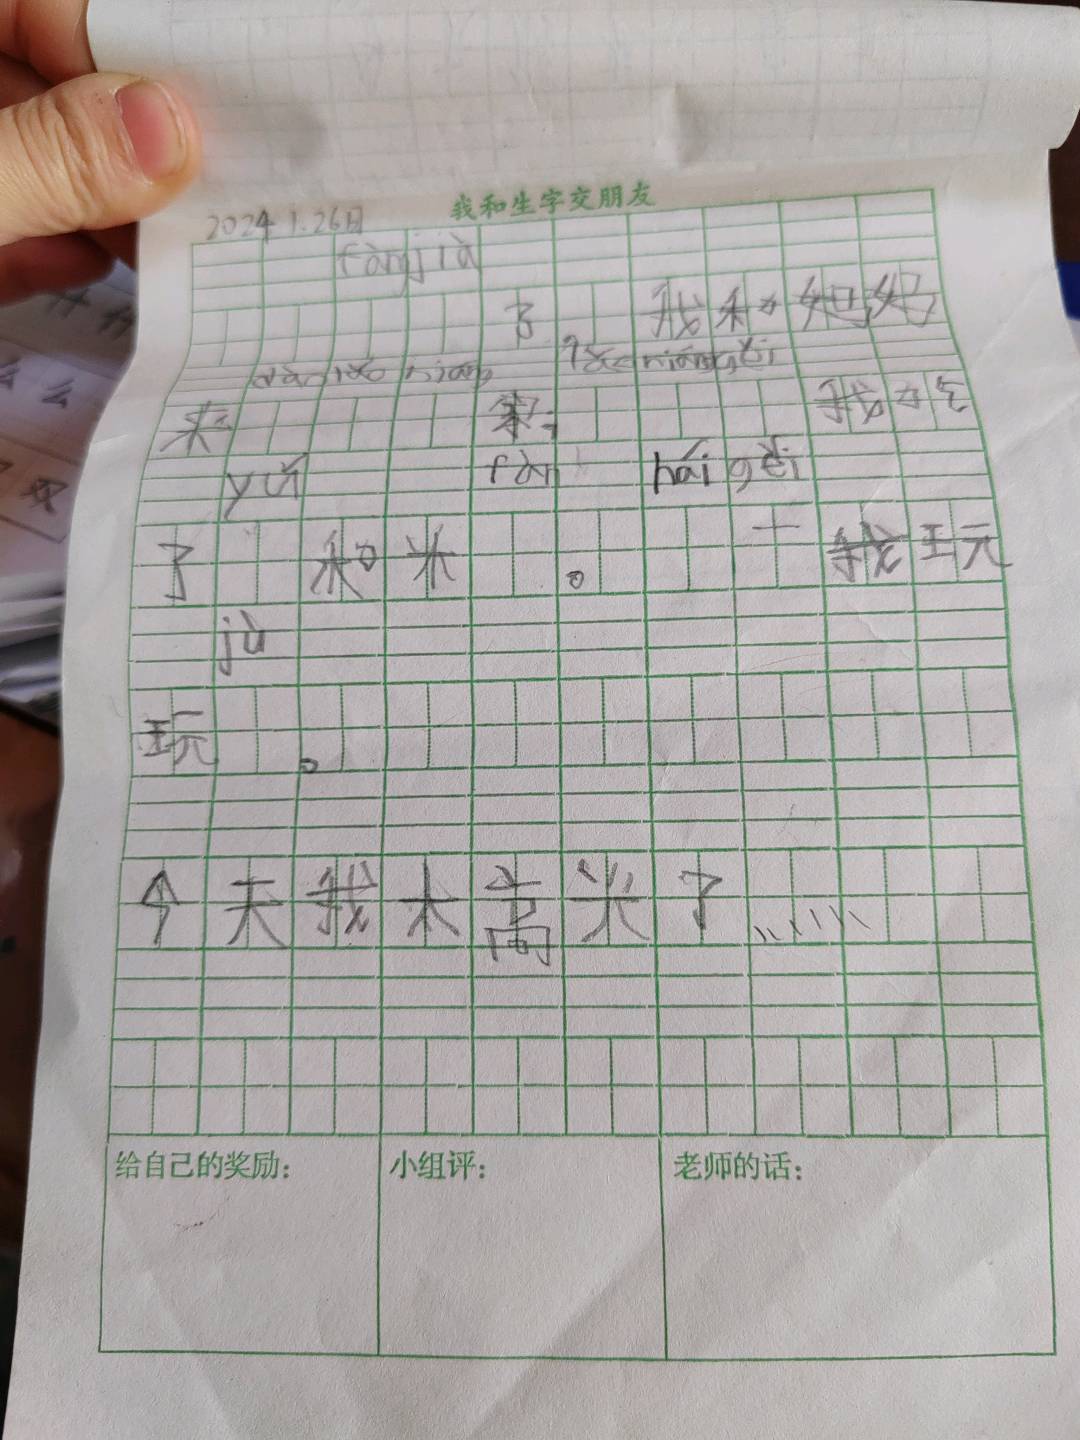 我和生字交朋友
2024 1.26日
fàng jià
了 我和妈妈
来 家 我
yú fàn hái gěi
了 和米 。 我玩
jù
玩 。
今天我太高兴了
给自己的奖励： 小组评： 老师的话：